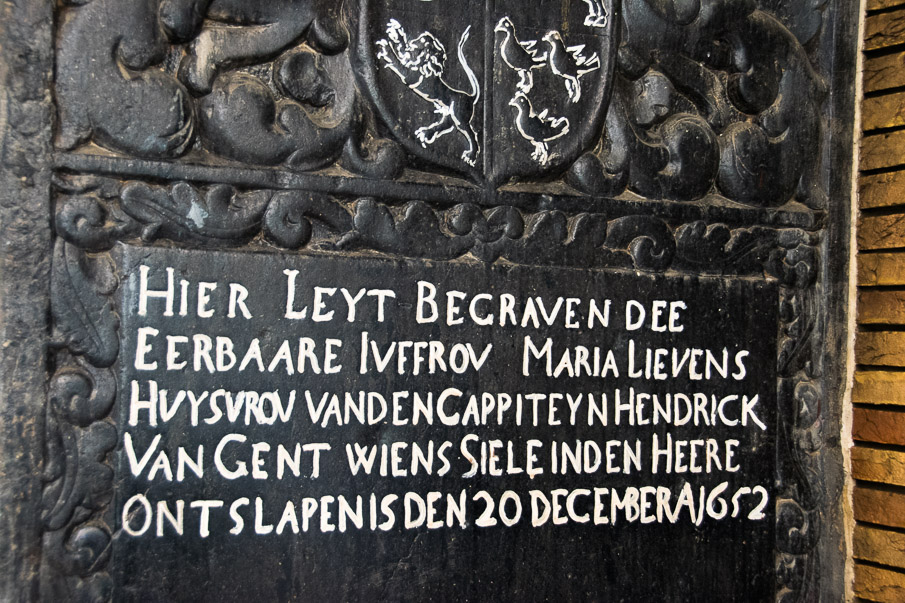 HIER LEYT BEGRAVEN DEE
EERBAARE IVFFROV MARIA LIEVENS
HVYSVROV VANDEN CAPPITEYN HENDRICK
VAN GENT WIENS SIELE INDEN HEERE
ONTSLAPEN IS DEN 20 DECEMBER Aº 1652